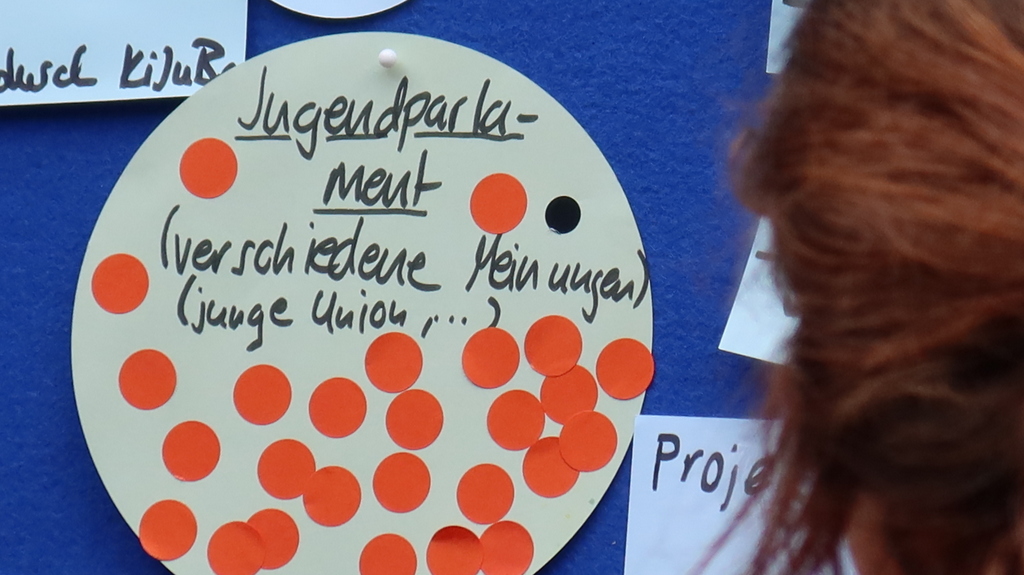 KiJuB
Jugendparla-
ment
(verschiedene Meinungen)
(junge Union, ...)
Proje